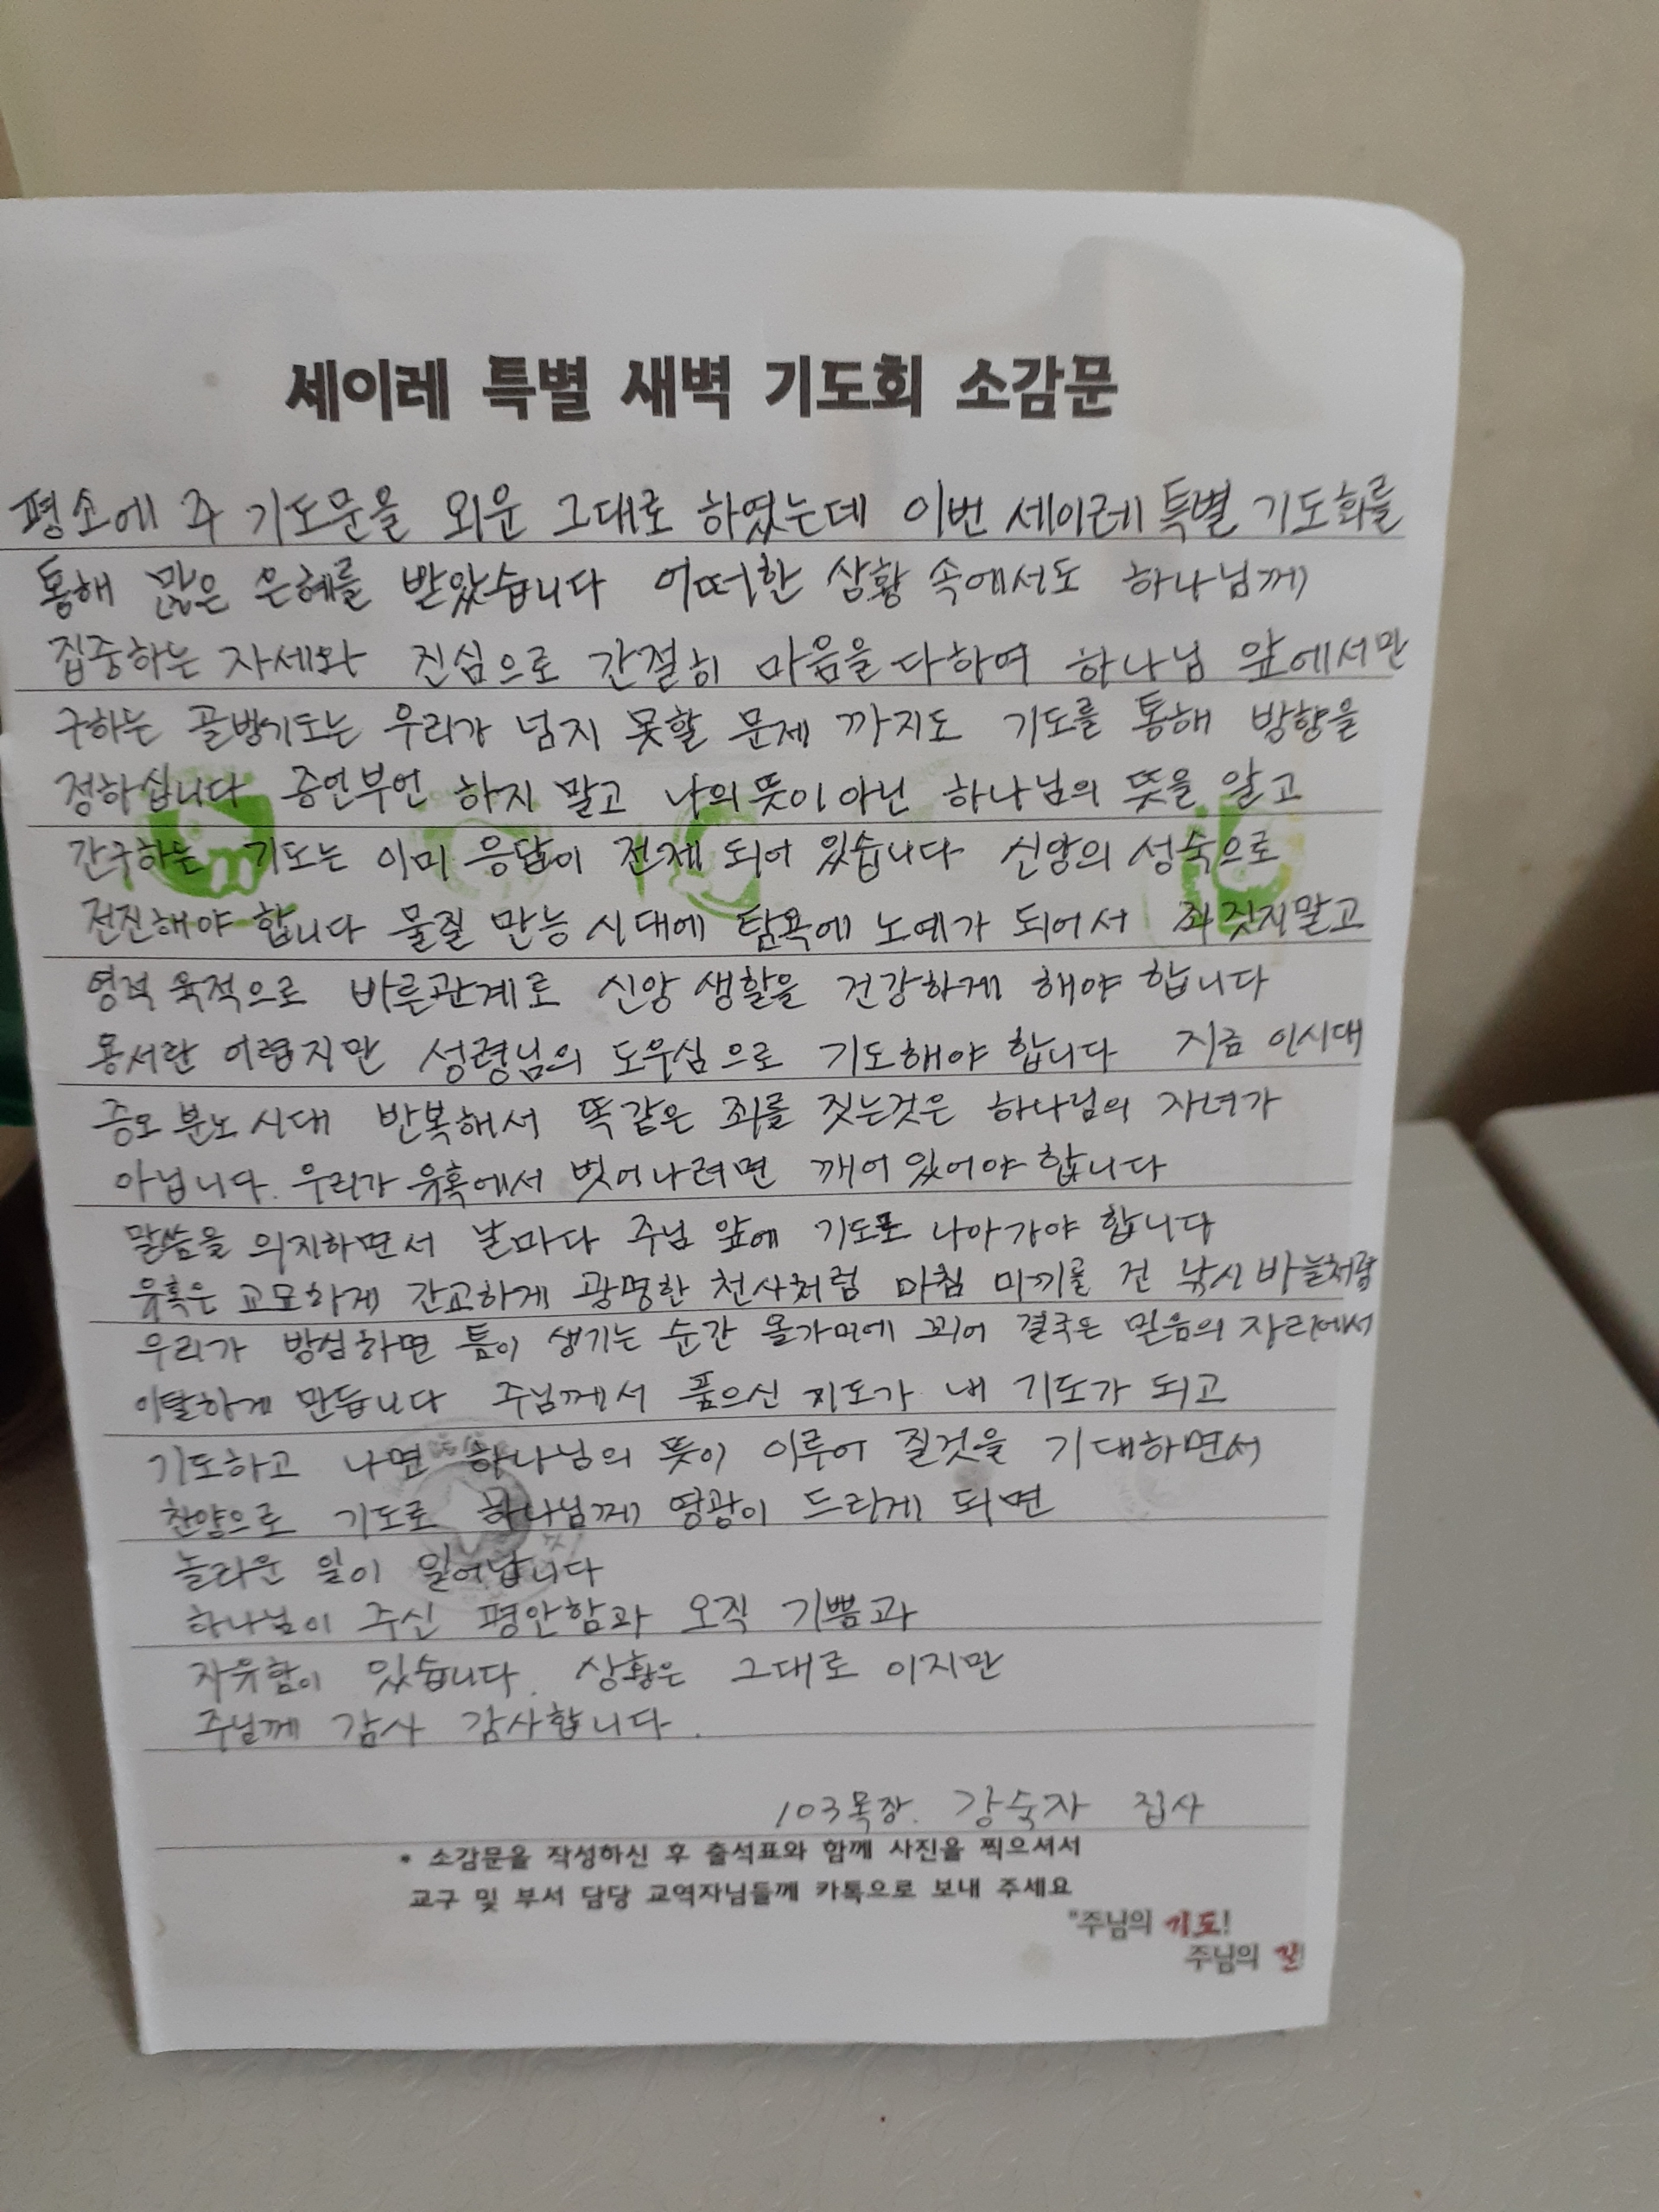 세이레 특별 새벽 기도회 소감문
평소에 주 기도문을 외운 그대로 하였는데 이번 세이레 특별 기도회를
통해 많은 은혜를 받았습니다 어떠한 상황 속에서도 하나님께
집중하는 자세와 진심으로 간절히 마음을 다하여 하나님 앞에서만
구하는 골방기도는 우리가 넘지 못할 문제 까지도 기도를 통해 방향을
정하십니다 중언부언 하지 말고 나의 뜻이 아닌 하나님의 뜻을 알고
간구하는 기도는 이미 응답이 전제 되어 있습니다 신앙의 성숙으로
전진해야 합니다 물질 만능 시대에 탐욕에 노예가 되어서 죄 짓지말고
영적 육적으로 바른관계로 신앙 생활을 건강하게 해야 합니다
용서란 어렵지만 성령님의 도우심으로 기도해야 합니다 지금 이시대
증오 분노 시대 반복해서 똑같은 죄를 짓는것은 하나님의 자녀가
아닙니다. 우리가 유혹에서 벗어나려면 깨어 있어야 합니다
말씀을 의지하면서 날마다 주님 앞에 기도로 나아가야 합니다
유혹은 교묘하게 간교하게 광명한 천사처럼 마침 미끼를 건 낚시 바늘처럼
우리가 방심하면 틈이 생기는 순간 올가미에 꾀어 결국은 믿음의 자리에서
이탈하게 만듭니다 주님께서 품으신 기도가 내 기도가 되고
기도하고 나면 하나님의 뜻이 이루어 질것을 기대하면서
찬양으로 기도로 하나님께 영광이 드리게 되면
놀라운 일이 일어납니다
하나님이 주신 평안함과 오직 기쁨과
자유함이 있습니다. 상황은 그대로 이지만
주님께 감사 감사합니다.
103목장. 강숙자 집사
* 소감문을 작성하신 후 출석표와 함께 사진을 찍으셔서
교구 및 부서 담당 교역자님들께 카톡으로 보내 주세요
"주님의 기도!
주님의 길!